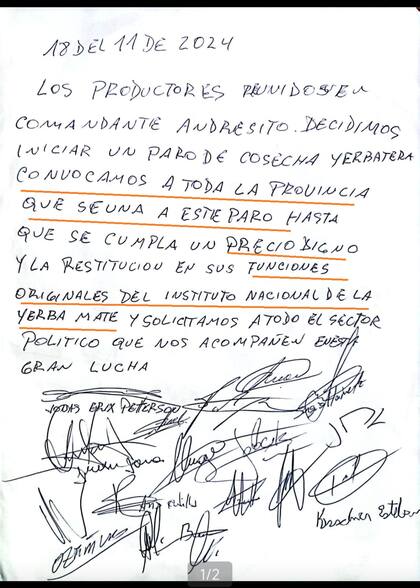 18 DEL 11 DE 2024
LOS PRODUCTORES REUNIDOS EN
COMANDANTE ANDRESITO. DECIDIMOS
INICIAR UN PARO DE COSECHA YERBATERA
CONVOCAMOS A TODA LA PROVINCIA
QUE SE UNA A ESTE PARO HASTA
QUE SE CUMPLA UN PRECIO DIGNO
Y LA RESTITUCION EN SUS FUNCIONES
ORIGINALES DEL INSTITUTO NACIONAL DE LA
YERBA MATE Y SOLICITAMOS A TODO EL SECTOR
POLITICO QUE NOS ACOMPAÑEN EN ESTA
GRAN LUCHA
JONAS ERIX PETERSON
Kirschner Esteban
1/2